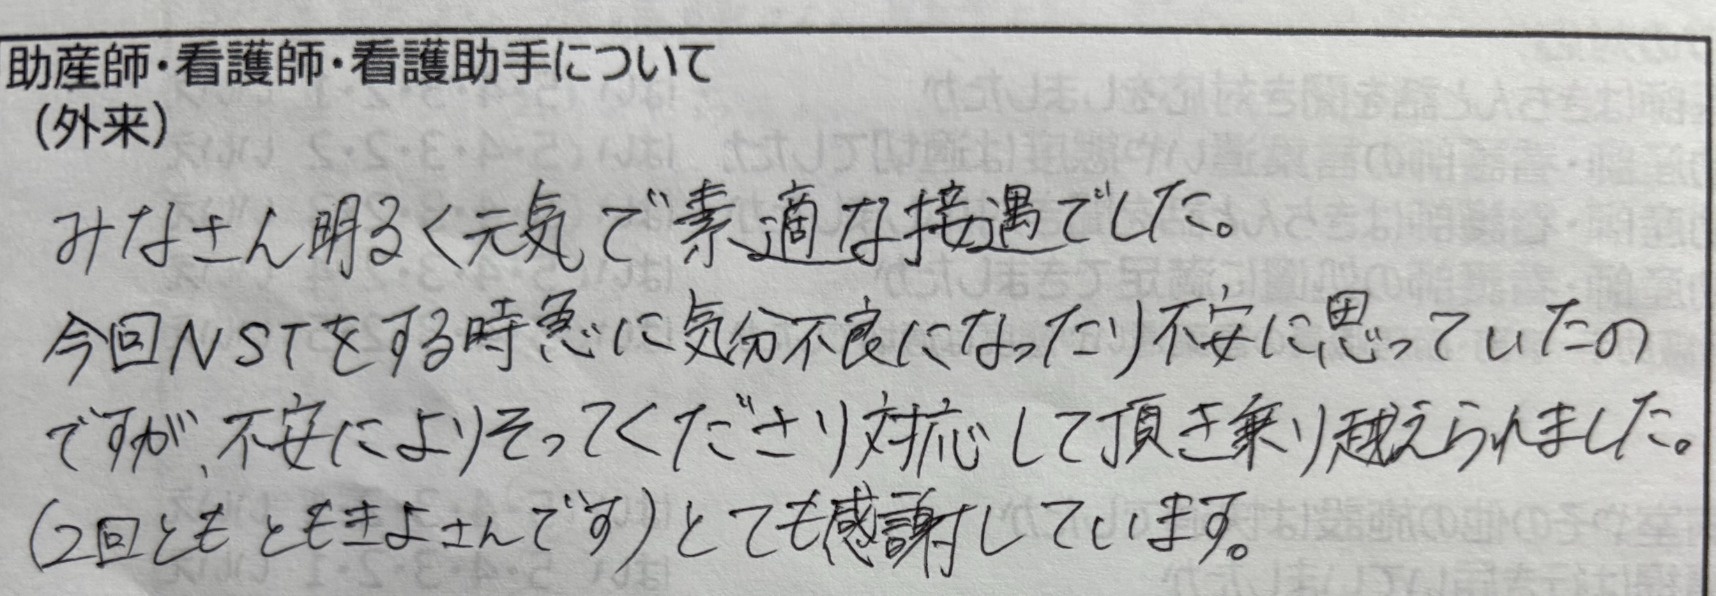 助産師・看護師・看護助手について
（外来）
みなさん明るく元気で素適な接遇でした。
今回NSTをする時急に気分不良になったり不安に思っていたの
ですが、不安によりそってくださり対応して頂き乗り越えられました。
(2回とも ともきよさんです)とても感謝しています。